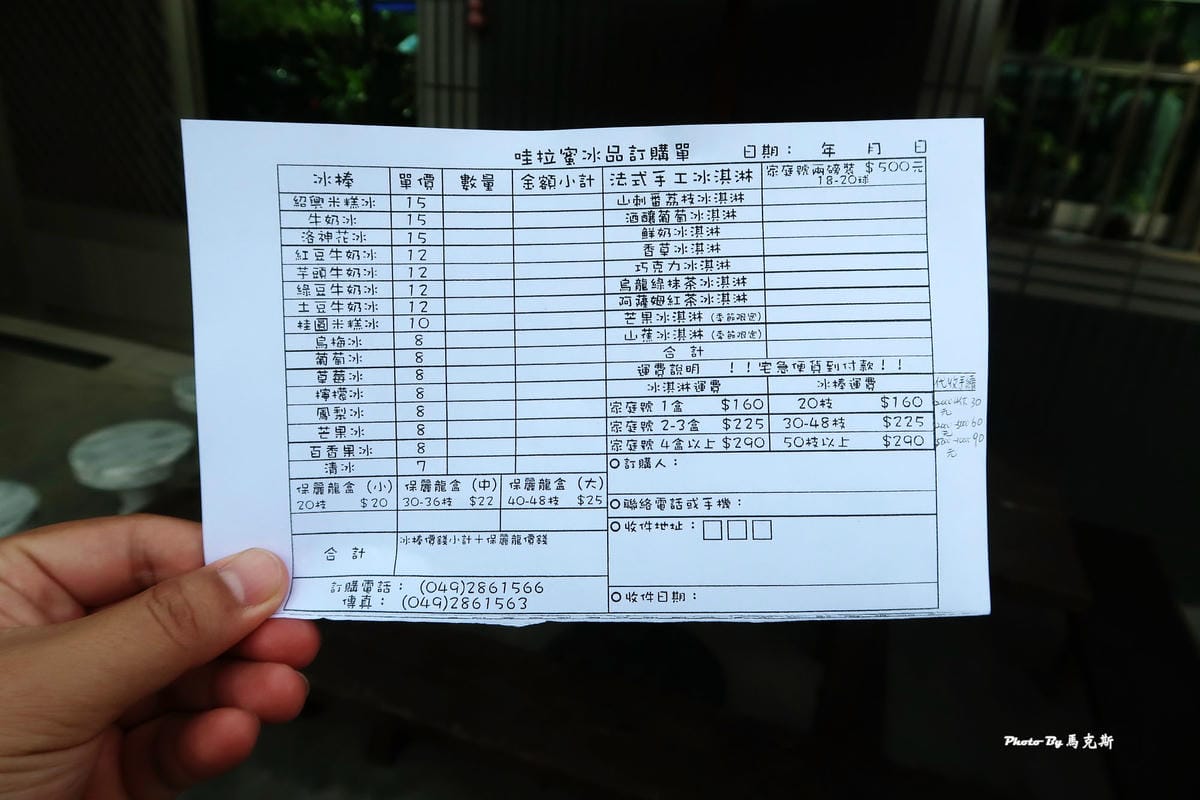 哇拉蜜冰品訂購單 日期： 年 月 日
冰棒 單價 數量 金額小計
紹興米糕冰 15
牛奶冰 15
洛神花冰 15
紅豆牛奶冰 12
芋頭牛奶冰 12
綠豆牛奶冰 12
土豆牛奶冰 12
桂圓米糕冰 10
烏梅冰 8
葡萄冰 8
草莓冰 8
檸檬冰 8
鳳梨冰 8
芒果冰 8
百香果冰 8
清冰 7
保麗龍盒 (小) 保麗龍盒 (中) 保麗龍盒 (大)
20枝 $20 30-36枝 $22 40-48枝 $25
合 計 冰棒價錢小計＋保麗龍價錢
訂購電話： (049)2861566
傳真： (049)2861563
法式手工冰淇淋 家庭號兩磅裝 $500元
18-20球
山刺番荔枝冰淇淋
酒釀葡萄冰淇淋
鮮奶冰淇淋
香草冰淇淋
巧克力冰淇淋
烏龍綠抹茶冰淇淋
阿薩姆紅茶冰淇淋
芒果冰淇淋 (季節限定)
山蕉冰淇淋 (季節限定)
合 計
運費說明 ！！宅急便貨到付款！！
冰淇淋運費 冰棒運費
家庭號 1盒 $160 20枝 $160
家庭號 2-3盒 $225 30-48枝 $225
家庭號 4盒以上 $290 50枝以上 $290
代收手續
30
元
60
元
90
元
○訂購人：
○聯絡電話或手機：
○收件地址：□□□
○收件日期：
Photo By 馬克斯